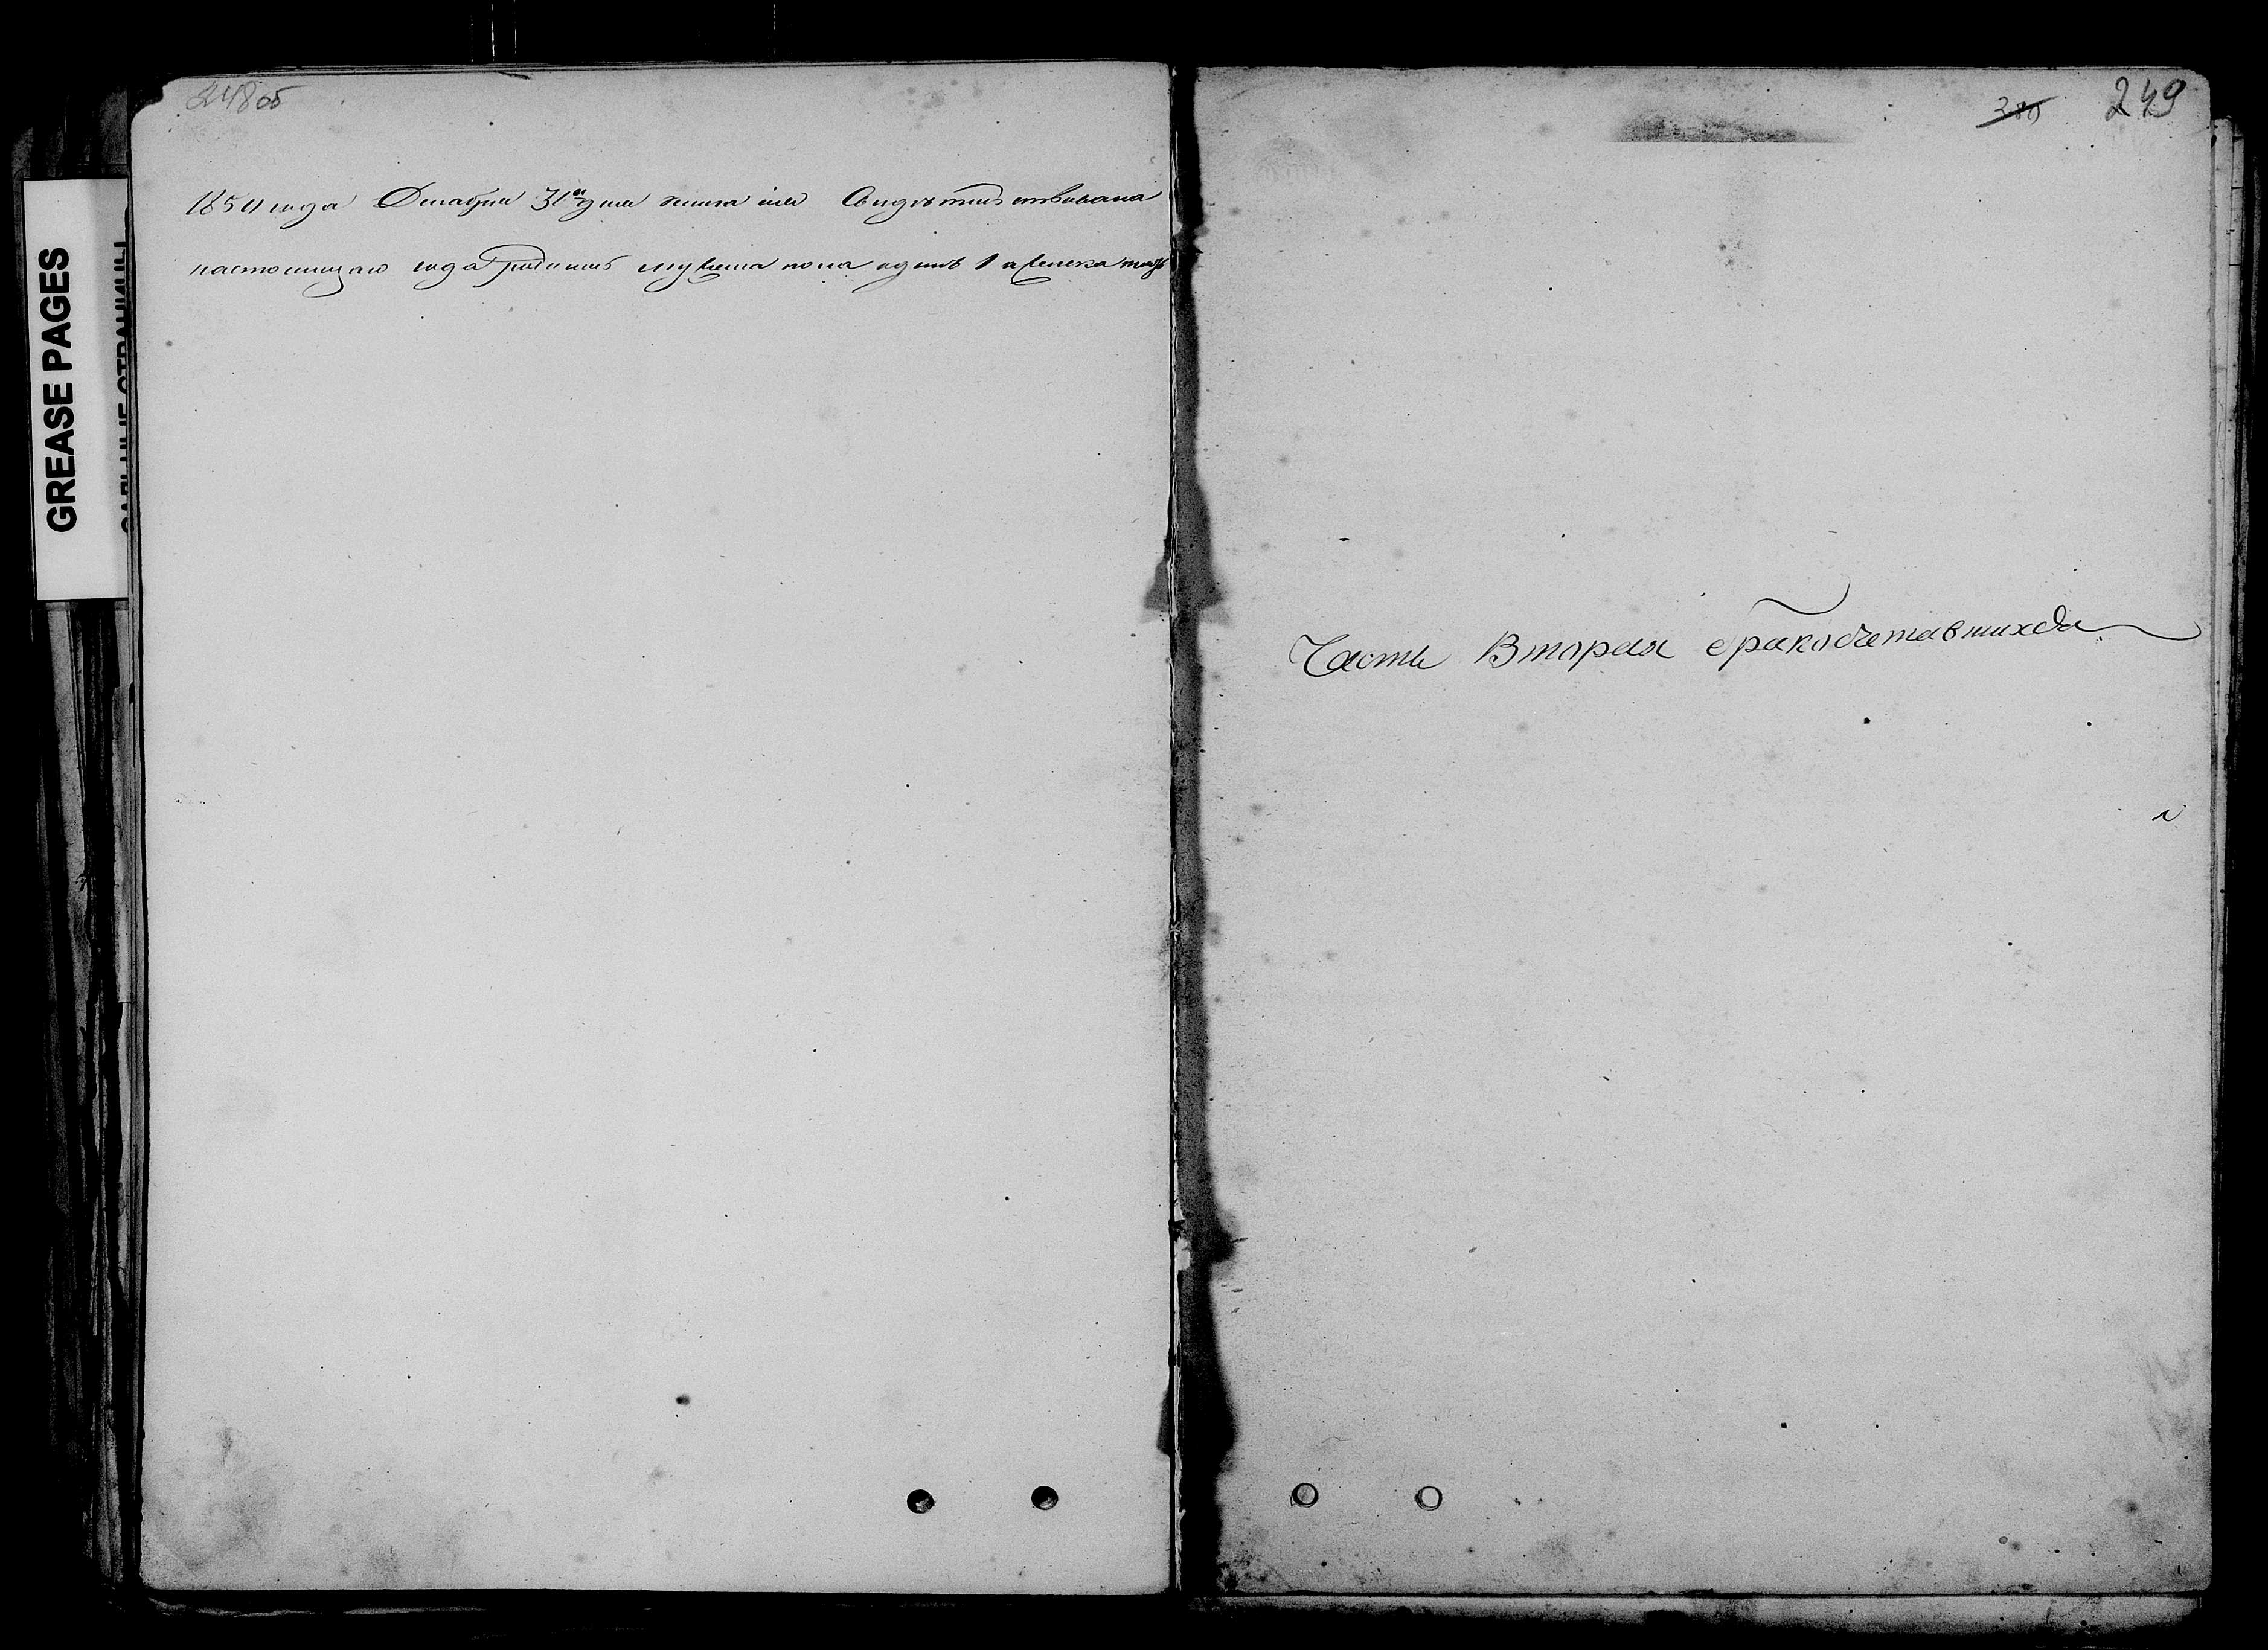 248об
1854 года Декабря 31го дня книга сия Свидѣтельствована
настоящаго года родилось мужеска пола одинъ 1 а женска тожъ
GREASE PAGES
САЛЬНЫЕ СТРАНИЦЫ
380 249
Часть Вторая о бракосочетавшихся